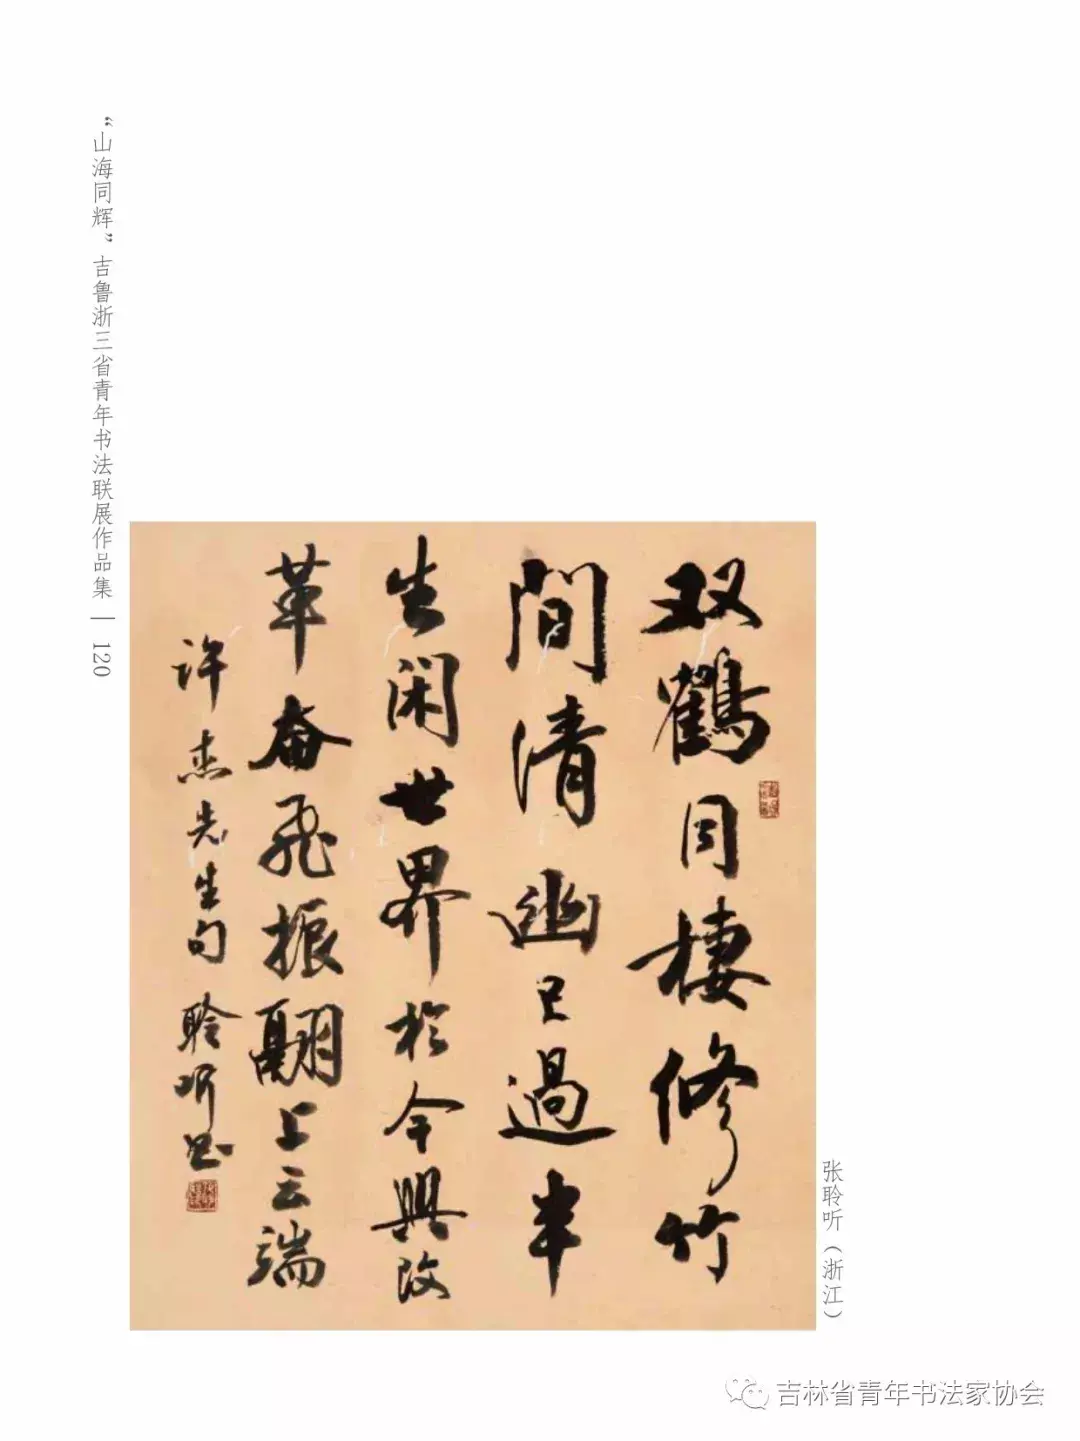 “山海同辉”吉鲁浙三省青年书法联展作品集 | 120
双鹤同栖修竹
间清幽已过半
生闲世界於今兴改
革奋飞振翮上云端
许杰先生句 聆听书
张聆听（浙江）
吉林省青年书法家协会